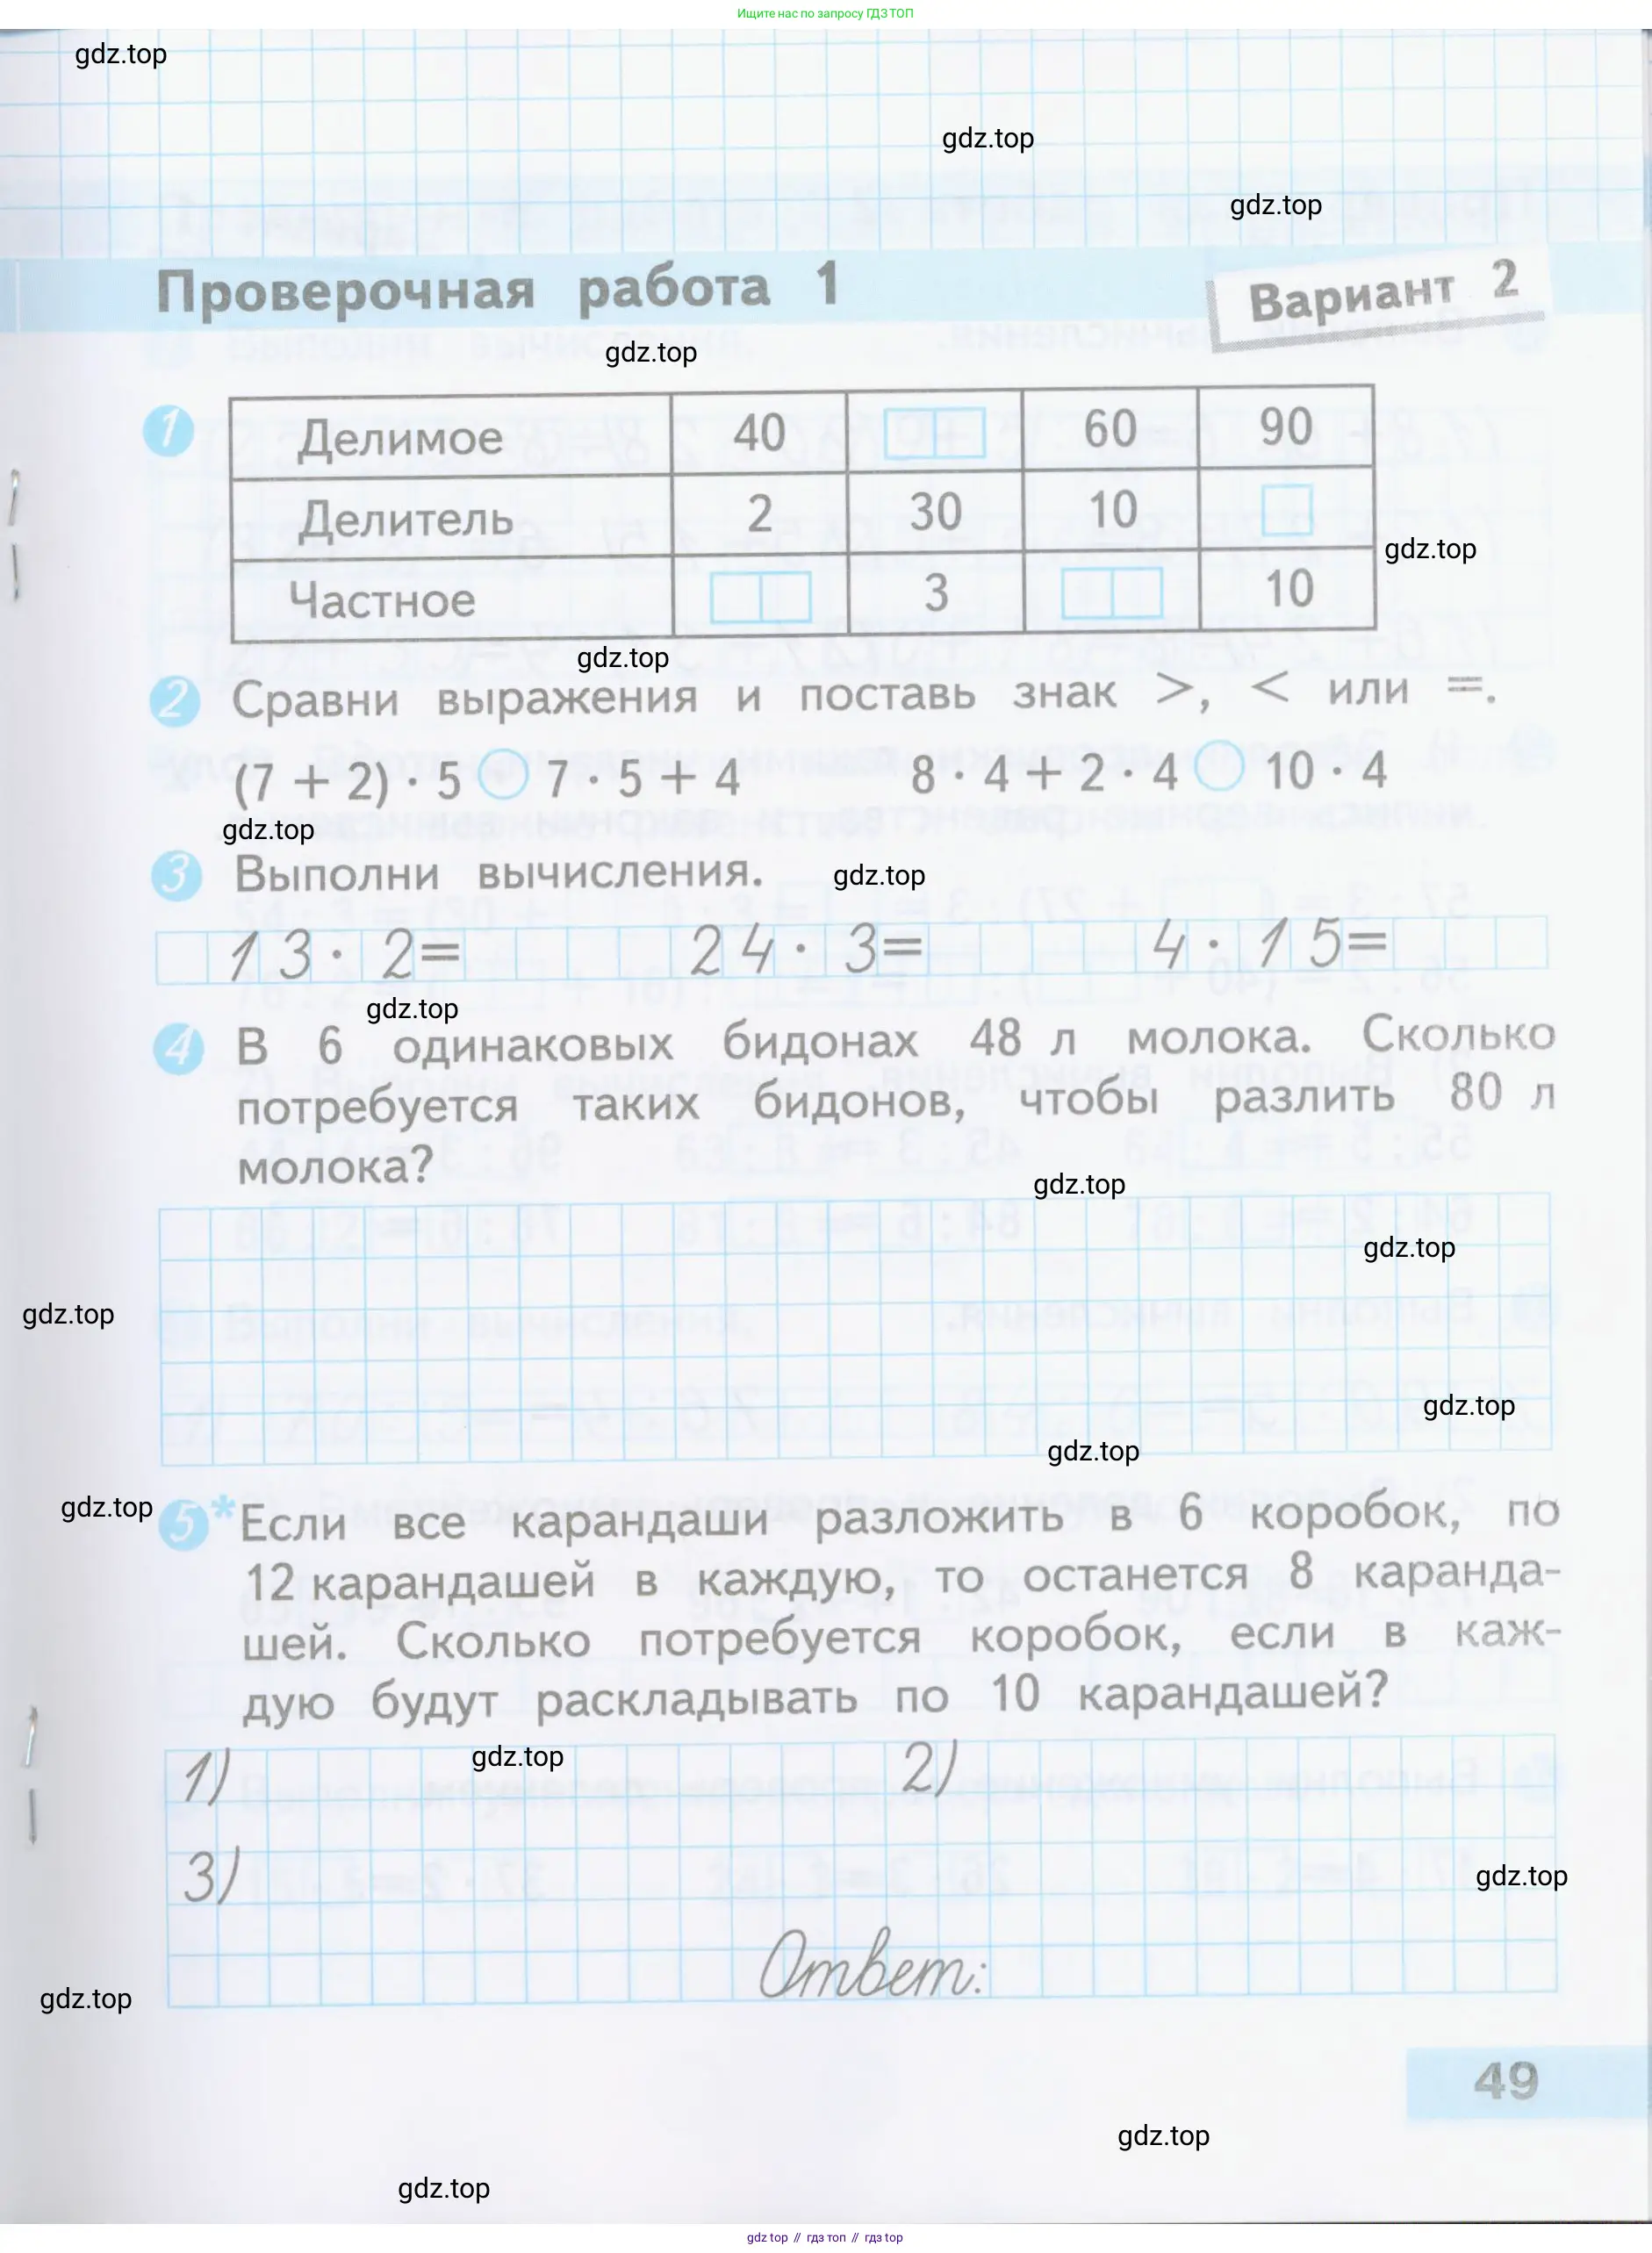 Ищите нас по запросу ГДЗ ТОП
gdz.top
gdz.top
gdz.top
Проверочная работа 1
Вариант 2
gdz.top
1
Делимое 40 60 90
Делитель 2 30 10
gdz.top
Частное 3 10
gdz.top
2 Сравни выражения и поставь знак >, < или =.
(7 + 2) · 5 7 · 5 + 4 8 · 4 + 2 · 4 10 · 4
gdz.top
3 Выполни вычисления.
gdz.top
13 · 2= 24 · 3= 4 · 15=
gdz.top
4 В 6 одинаковых бидонах 48 л молока. Сколько
потребуется таких бидонов, чтобы разлить 80 л
молока?
gdz.top
gdz.top
gdz.top
gdz.top
gdz.top
gdz.top
5* Если все карандаши разложить в 6 коробок, по
12 карандашей в каждую, то останется 8 каранда-
шей. Сколько потребуется коробок, если в каж-
дую будут раскладывать по 10 карандашей?
1) 2)
gdz.top
3)
gdz.top
Ответ:
gdz.top
49
gdz.top
gdz.top
gdz top // гдз топ // гдз top